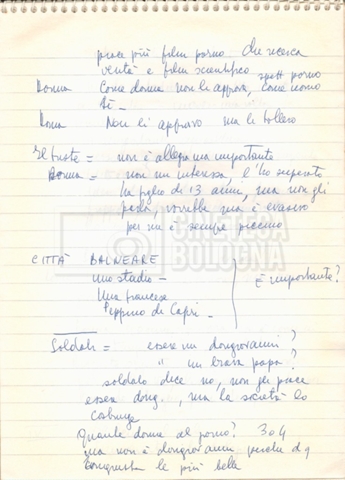 piace più film porno che ricerca
verità e film scientifico spett porno
Donna Come donna non li approva, come uomo
sì -
Donna Non li approvo ma li tollero
Il triste = non è allegra ma importante
Donna = non mi interessa, l'ho superato
ha figlio di 13 anni, ma non gli
parla, vorrebbe ma è evasivo
per me è sempre piccino
CITTÀ BALNEARE
uno stadio -
Una francese
Peppino di Capri -
È importante?
Soldati = essere un dongiovanni?
" un bravo papa?
soldato dice no, non gli piace
essere dong..., ma la società lo
costringe
Quante donne al giorno? 3 o 4
ma non è dongiovanni perché
conquista le più belle
CINETECA
BOLOGNA